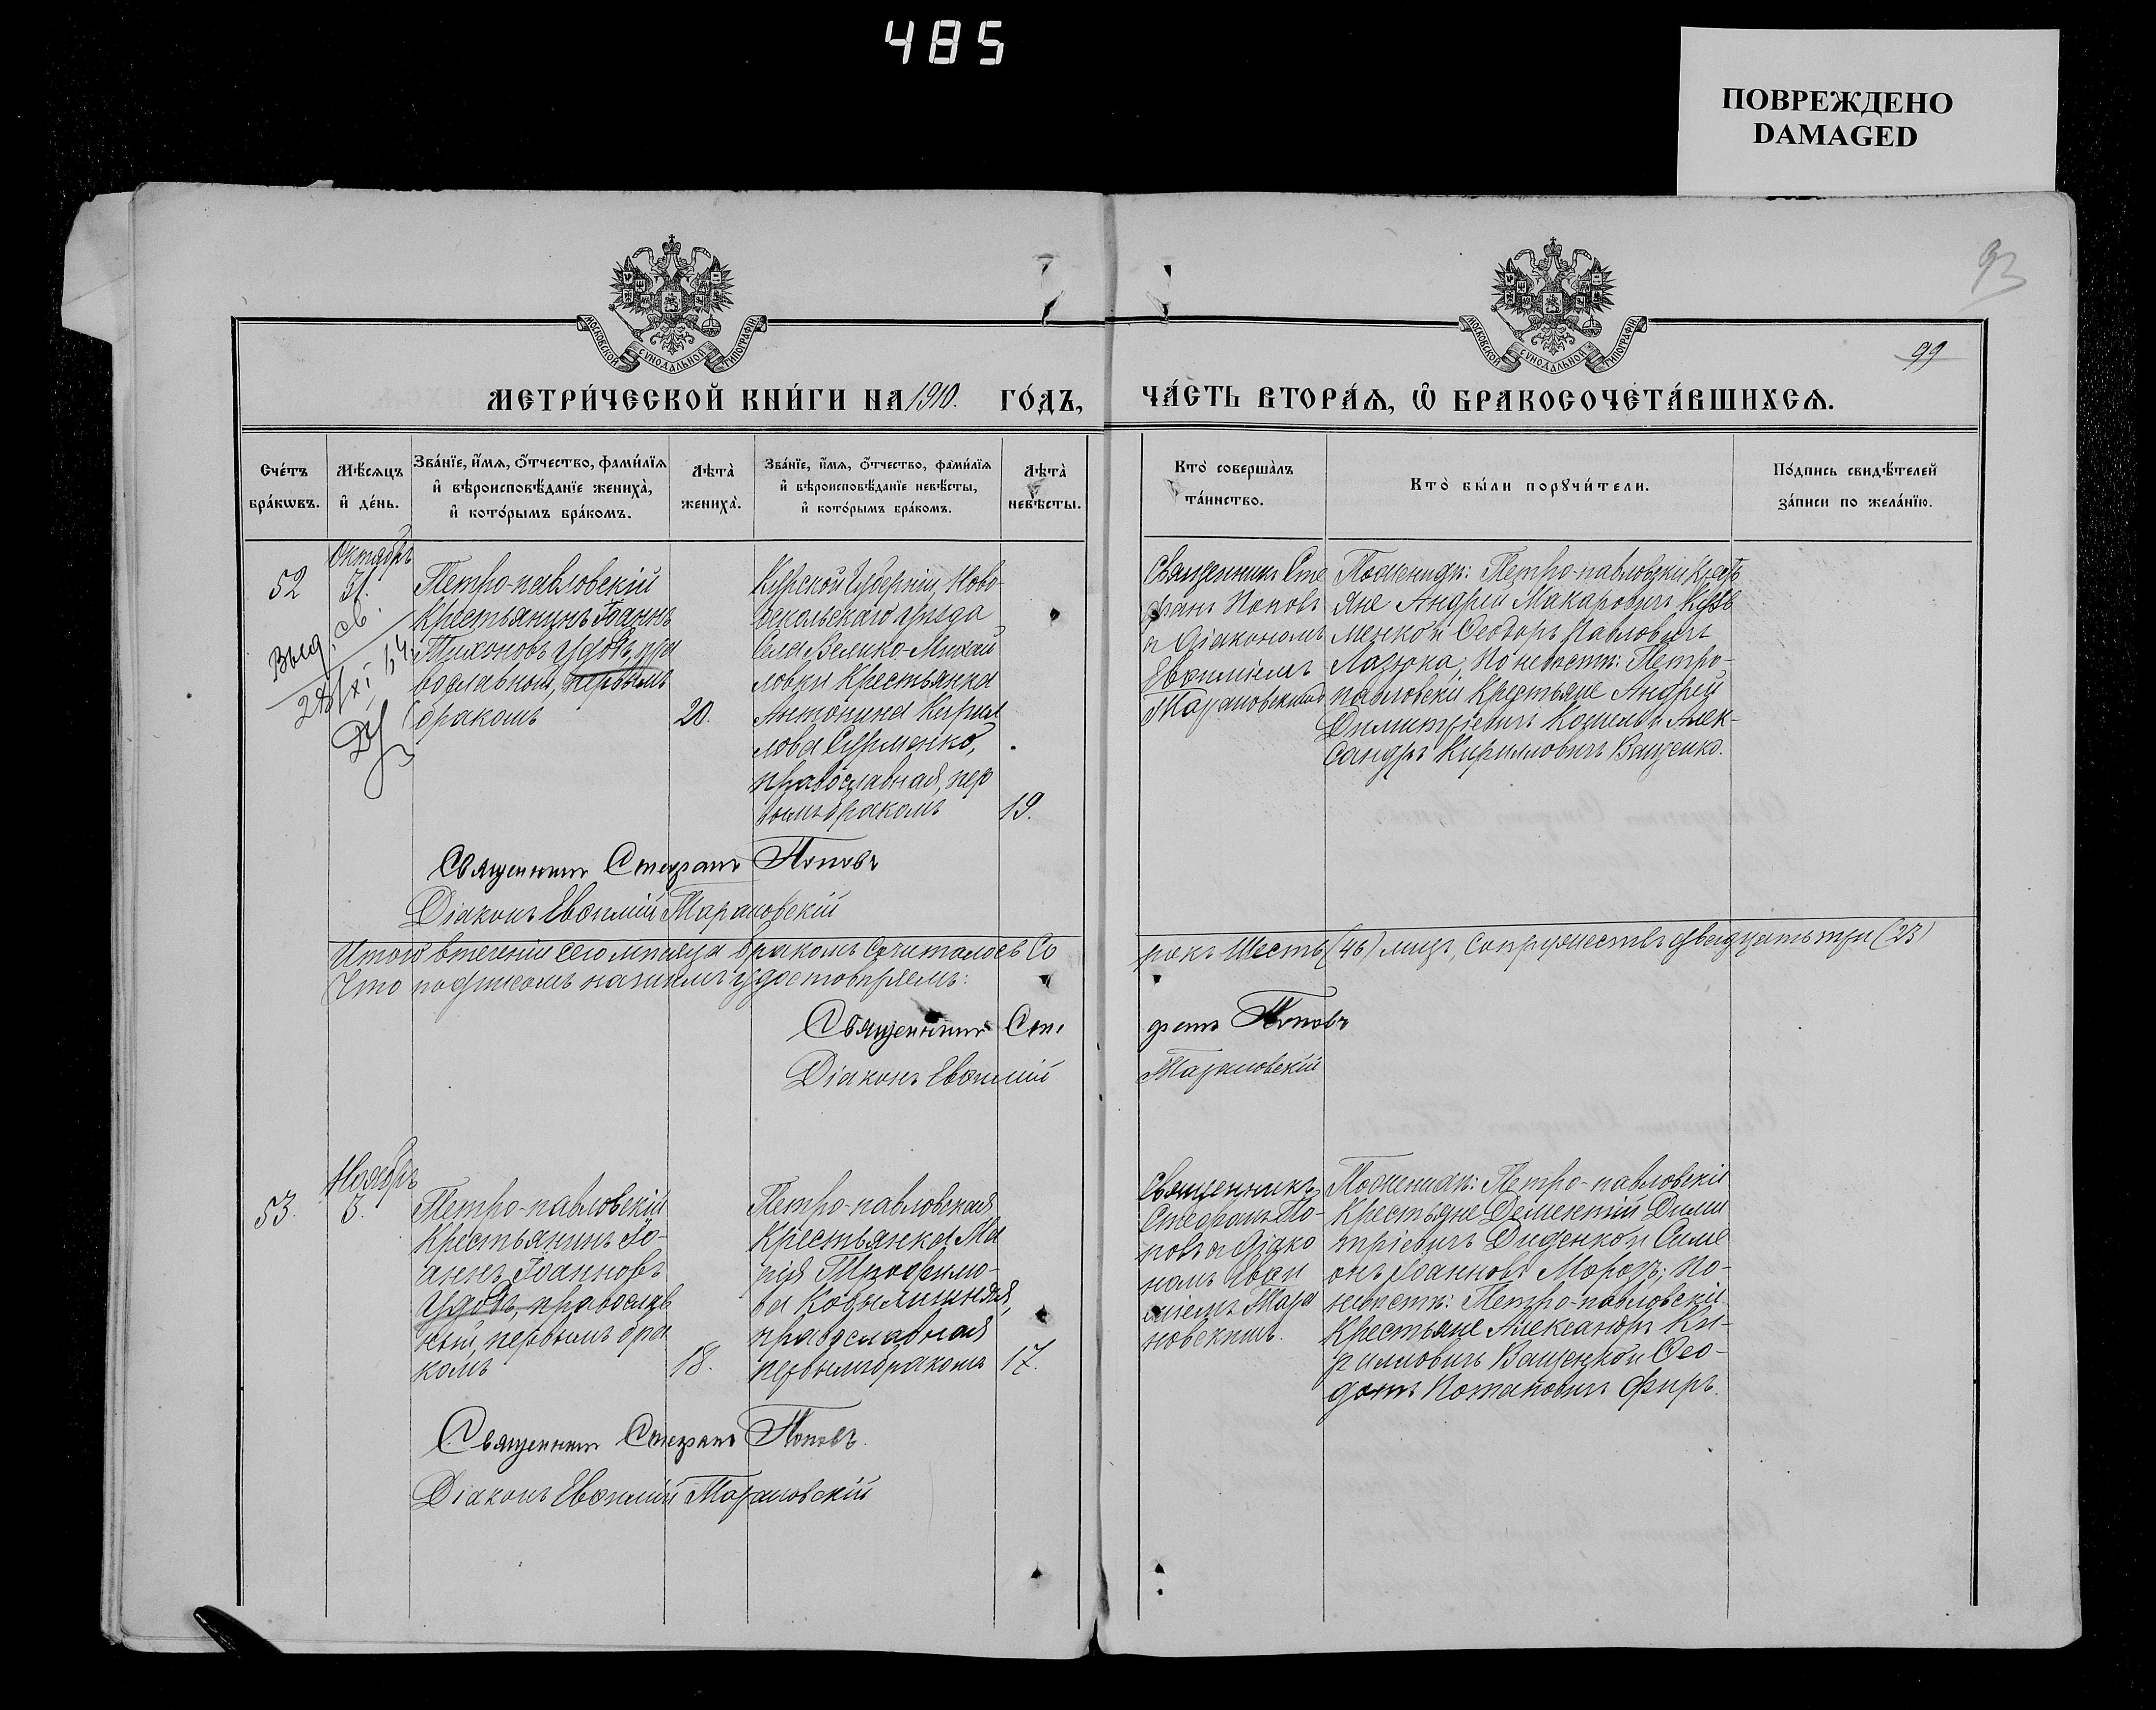 485
ПОВРЕЖДЕНО
DAMAGED
93
99
МОСКОВСКОЙ СѴНОДАЛЬНОЙ ТИПОГРАФІИ
МОСКОВСКОЙ СѴНОДАЛЬНОЙ ТИПОГРАФІИ
МЕТРИ́ЧЕСКОЙ КНИ́ГИ НА 1910. ГО́ДЪ,
ЧА́СТЬ ВТОРА́Ѧ, Ѽ БРАКОСОЧЕТА́ВШИХСѦ.
Сче́тъ бра́кѡвъ.
Мѣ́сяцъ и҆ де́нь.
Зва́нїе, и҆́мѧ, ѻ҆́тчество, фами́лїѧ
и҆ вѣроисповѣ́данїе жениха̀,
и҆ кото́рымъ бра́комъ.
Лѣта̀ жениха̀.
Зва́нїе, и҆́мѧ, ѻ҆́тчество, фами́лїѧ
и҆ вѣроисповѣ́данїе невѣ́сты,
и҆ кото́рымъ бра́комъ.
Лѣта̀ невѣ́сты.
Кто̀ соверша̀лъ та́инство.
Кто̀ бы́ли порꙋчи́тели.
По́дпись свидѣ́телей
за́писи по жела́нїю.
52
Октябрь
31.
Выд. св.
28/XI 54
Петро-павловскій
крестьянинъ Іоаннъ
Тихоновъ Удовъ, пра
вославный, первымъ
бракомъ
20.
Курской Губерніи, Ново-
оскольскаго уѣзда
села Велико-Михай
ловки крестьянка
Антонина Кирил
лова
православная, пер
вымъ бракомъ
19.
Священникъ Сте
фанъ Поповъ
с діакономъ
Евѳиміемъ
Тарановскимъ
По женихѣ: Петро-павловскіи кресть
яне Андрей Макаровичъ Кузь
менко и Ѳеодоръ Павловичъ
Лазюка; По невѣстѣ: Петро-
павловскіи крестьяне Андрей
Димитріевичъ Кошель и Алек-
сандръ Кирилловичъ Ващенко.
Священникъ Стефанъ Поповъ
Діаконъ Евѳимій Тарановскій
Итого в теченіи сего мѣсяца бракомъ сочиталось со
рокъ шесть (46) лицъ, супружествъ двадцать три (23)
Что подписомъ нашимъ удостовѣряемъ:
Священникъ Сте
фанъ Поповъ
Діаконъ Евѳимій
Тарановскій
53.
Ноябрь
3.
Петро-павловскій
крестьянинъ Іо-
аннъ Іоанновъ
Удовъ, православ
ный, первымъ бра
комъ
18.
Петро-павловская
крестьянка Ма
рія Трофимо-
ва
православная
первымъ бракомъ
17.
Священникъ
Стефанъ По-
повъ с діако
номъ Евѳи
міемъ Тара
новскимъ.
По женихѣ: Петро-павловскіи
крестьяне Дементій Дими
тріевичъ Диденко и Симе
онъ Іоанновъ Морозъ; По-
невѣстѣ: Петро-павловскіи
крестьяне Александръ Ки-
рилловичъ Ващенко и Ѳео-
дотъ Потаповичъ Фиръ.
Священникъ Стефанъ Поповъ.
Діаконъ Евѳимій Тарановскій